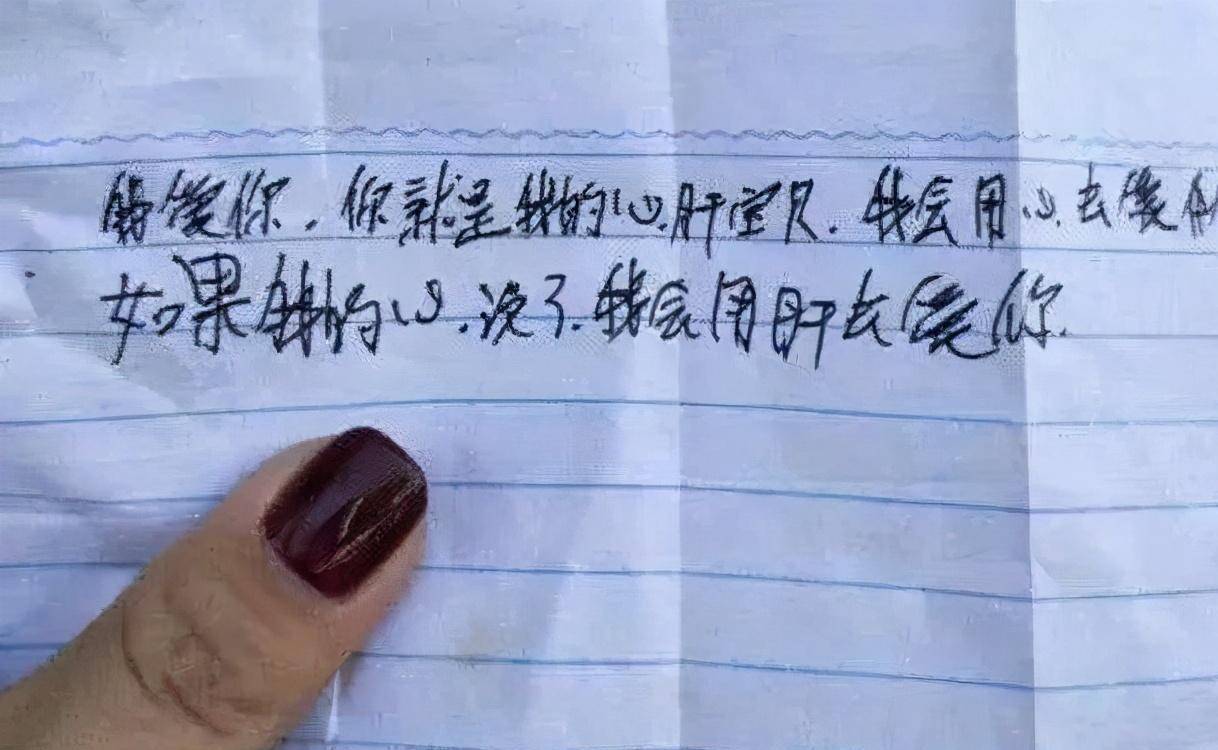 我爱你.你就是我的心肝宝贝.我会用心去爱你
如果我的心没了.我会用肝去爱你.